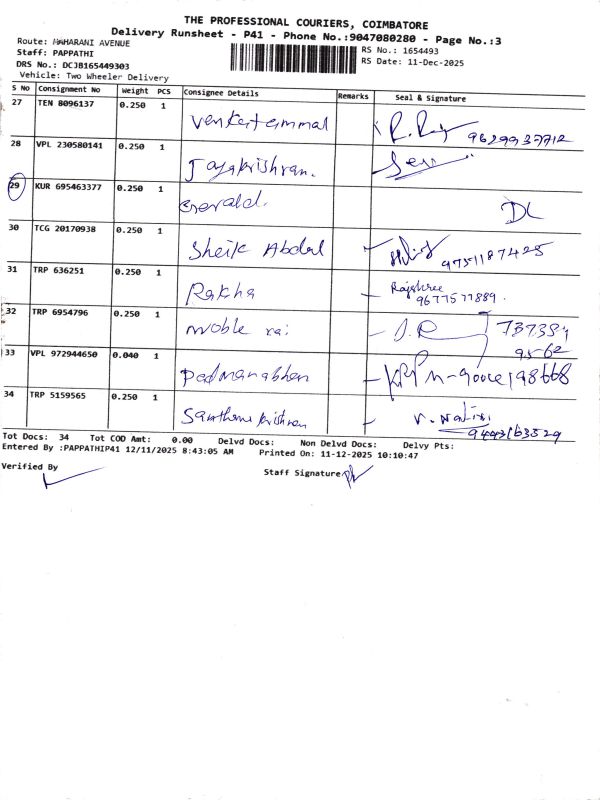 THE PROFESSIONAL COURIERS, COIMBATORE
Delivery Runsheet - P41 - Phone No.:9047080280 - Page No.:3
Route: MAHARANI AVENUE
RS No.: 1654493
Staff: PAPPATHI
RS Date: 11-Dec-2025
DRS No.: DCJB165449303
Vehicle: Two Wheeler Delivery
S No Consignment No Weight PCS Consignee Details Remarks Seal & Signature
27 TEN 8096137 0.250 1 Venkatammal
28 VPL 230580141 0.250 1 Jayakrishnan.
29 KUR 695463377 0.250 1 Gerald. DL
30 TCG 20170938 0.250 1 Sheik Abdul 9751187425
31 TRP 636251 0.250 1 Rakha Rajshree
9677577889.
32 TRP 6954796 0.250 1 Noble
33 VPL 972944650 0.040 1 Padmanabhan
34 TRP 5159565 0.250 1
Tot Docs: 34 Tot COD Amt: 0.00 Delvd Docs: Non Delvd Docs: Delvy Pts:
Entered By :PAPPATHIP41 12/11/2025 8:43:05 AM Printed On: 11-12-2025 10:10:47
Verified By Staff Signature